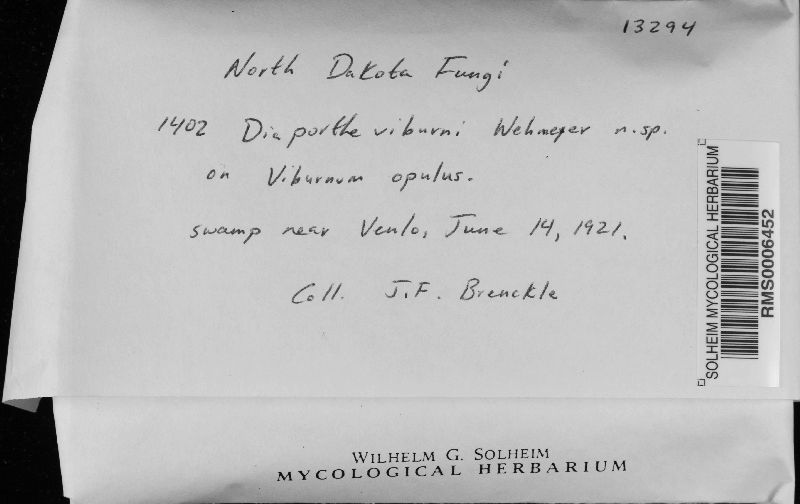 13294
North Dakota Fungi
1402 Diaporthe viburni Wehmeyer n.sp.
on Viburnum opulus.
swamp near Venlo, June 14, 1921.
Coll. J.F. Brenckle
SOLHEIM MYCOLOGICAL HERBARIUM
RMS0006452
WILHELM G. SOLHEIM
MYCOLOGICAL HERBARIUM